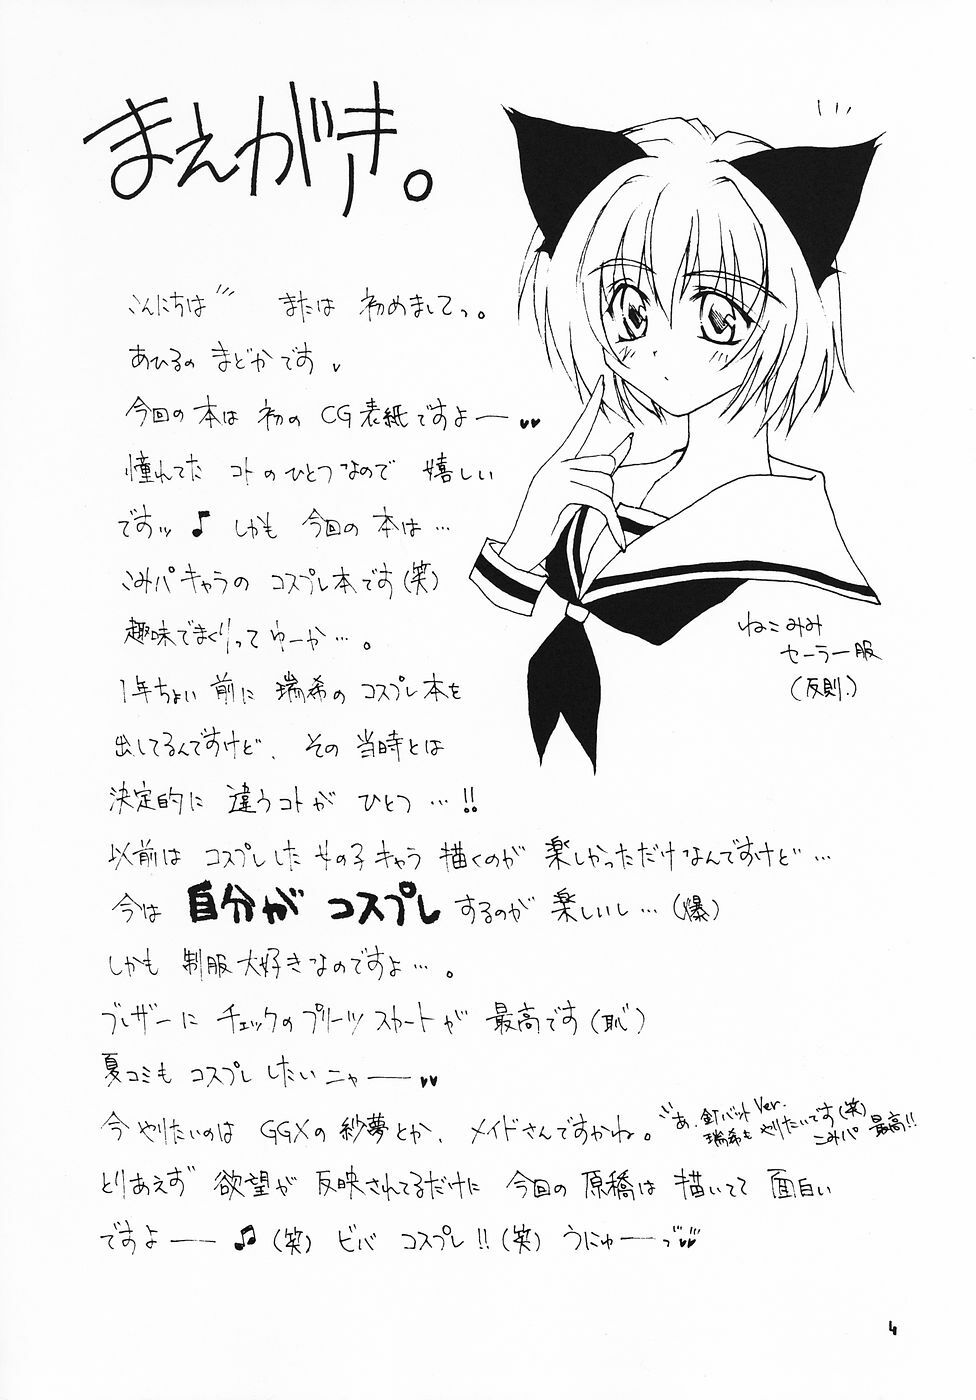 まえがき。
こんにちは または 初めましてっ。
あひるの まどかです
今回の 本は 初の CG表紙ですよー♥♥
憧れてた コトの ひとつなので 嬉しい
ですッ♪ しかも 今回の 本は…
こみパキャラの コスプレ本です(笑)
趣味でまくりって ゆーか…。
1年ちょい 前に 瑞希の コスプレ本を
出してるんですけど、その 当時とは
決定的に 違うコトが ひとつ…!!
以前は コスプレした 女の子キャラ 描くのが 楽しかっただけなんですけど…
今は 自分が コスプレ するのが 楽しいし…(爆)
しかも 制服大好きなのですよ…。
ブレザーに チェックのプリーツスカートが 最高です(恥)
夏コミも コスプレ したいニャー♥♥
今 やりたいのは GGXの 紗夢とか、メイドさんですかね。
あ、釘バット Ver.
瑞希も やりたいです(笑)
こみパ 最高!!
とりあえず 欲望が 反映されてるだけに 今回の 原稿は 描いてて 面白い
ですよー♫(笑) ビバ コスプレ!!(笑) うにゅーっ♥♥
ねこみみ
セーラー服
(反則。)
4